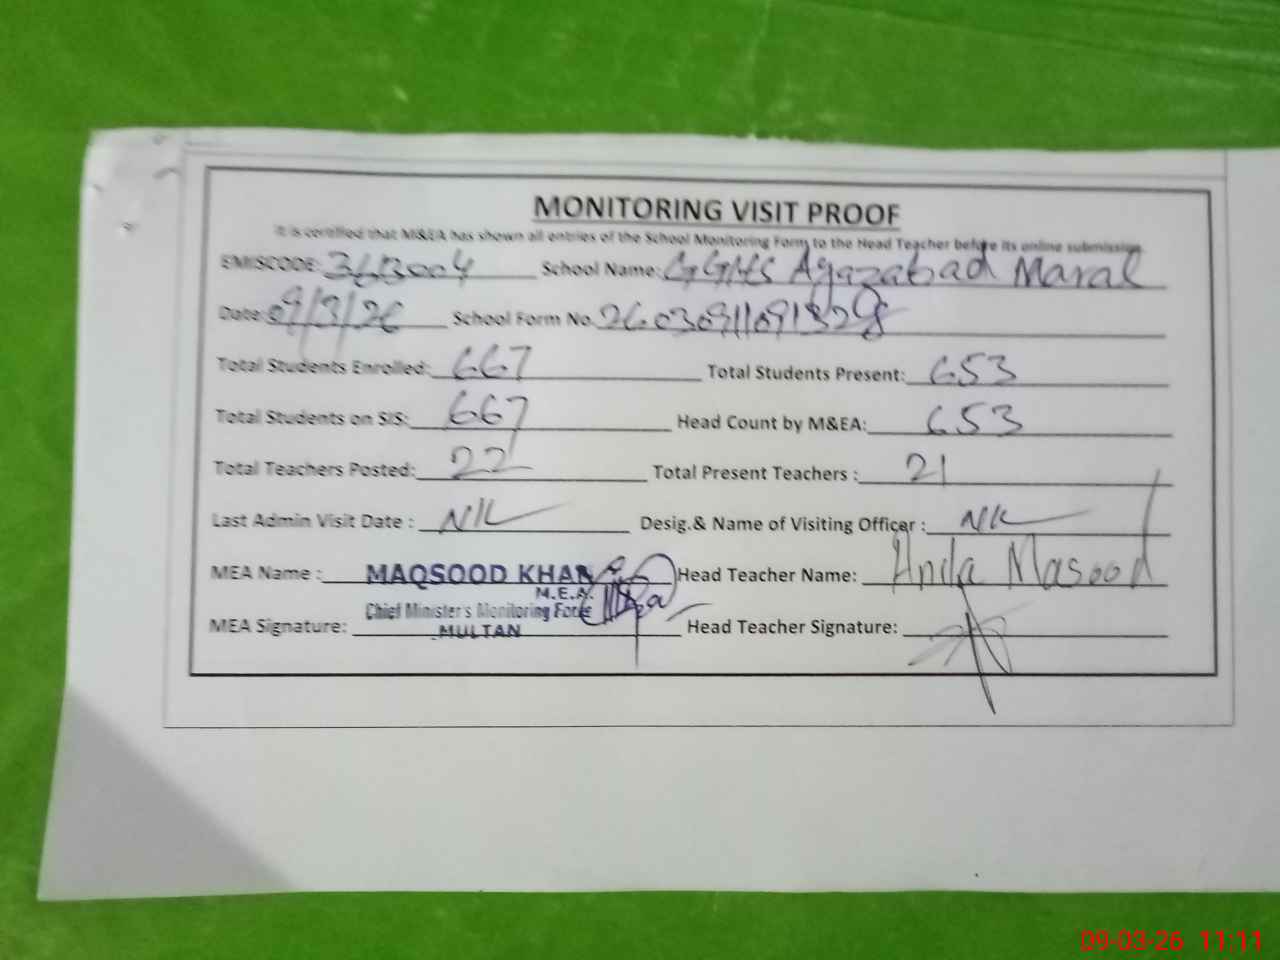 MONITORING VISIT PROOF
It is certified that M&EA has shown all entries of the School Monitoring Form to the Head Teacher before its online submission.
EMISCODE: 3613004 School Name: GGHS Agazabad Maral
Date: 09/3/26 School Form No. 2603091109132 8
Total Students Enrolled: 667 Total Students Present: 653
Total Students on SIS: 667 Head Count by M&EA: 653
Total Teachers Posted: 22 Total Present Teachers : 21
Last Admin Visit Date : Nil Desig.& Name of Visiting Officer : Nil
MEA Name : MAQSOOD KHAN Head Teacher Name: Anila Masood
M.E.A.
Chief Minister's Monitoring Force
MEA Signature: MULTAN Head Teacher Signature:
09-03-26 11:11